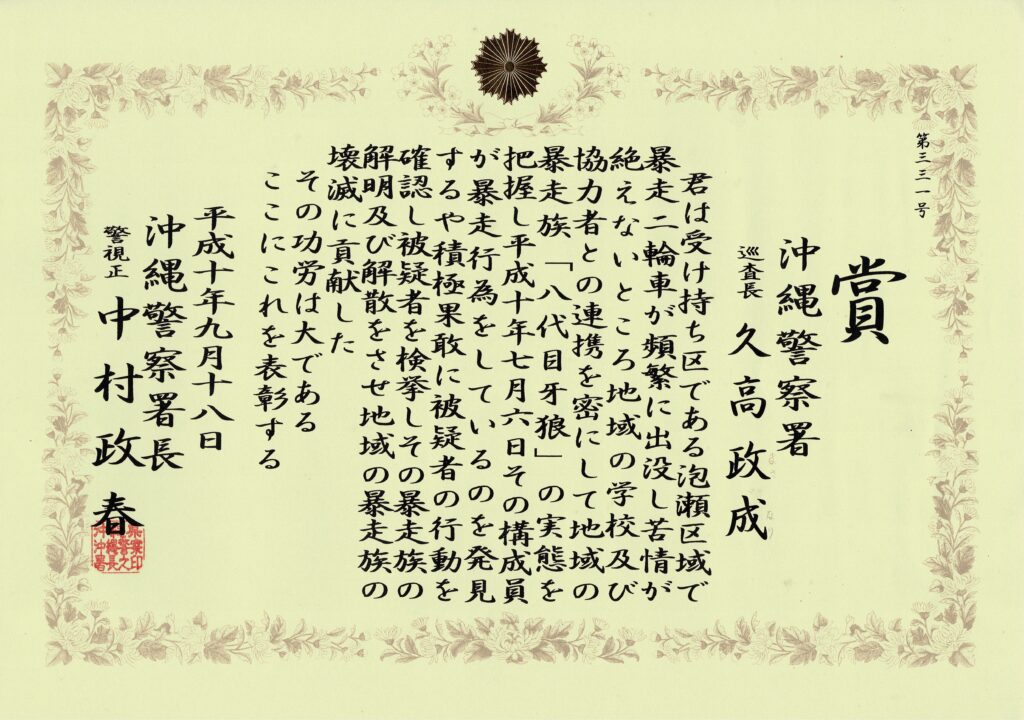 第三三一号
賞
沖縄警察署
巡査長 久高政成
君は受け持ち区である泡瀬区域で
暴走二輪車が頻繁に出没し苦情が
絶えないところ地域の学校及び
協力者との連携を密にして地域の
暴走族「八代目牙狼」の実態を
把握し平成十年七月六日その構成員
が暴走行為をしているのを発見
するや積極果敢に被疑者の行動を
確認し被疑者を検挙しその暴走族の
解明及び解散をさせ地域の暴走族の
壊滅に貢献した
その功労は大である
ここにこれを表彰する
平成十年九月十八日
沖縄警察署長
警視正 中村政春